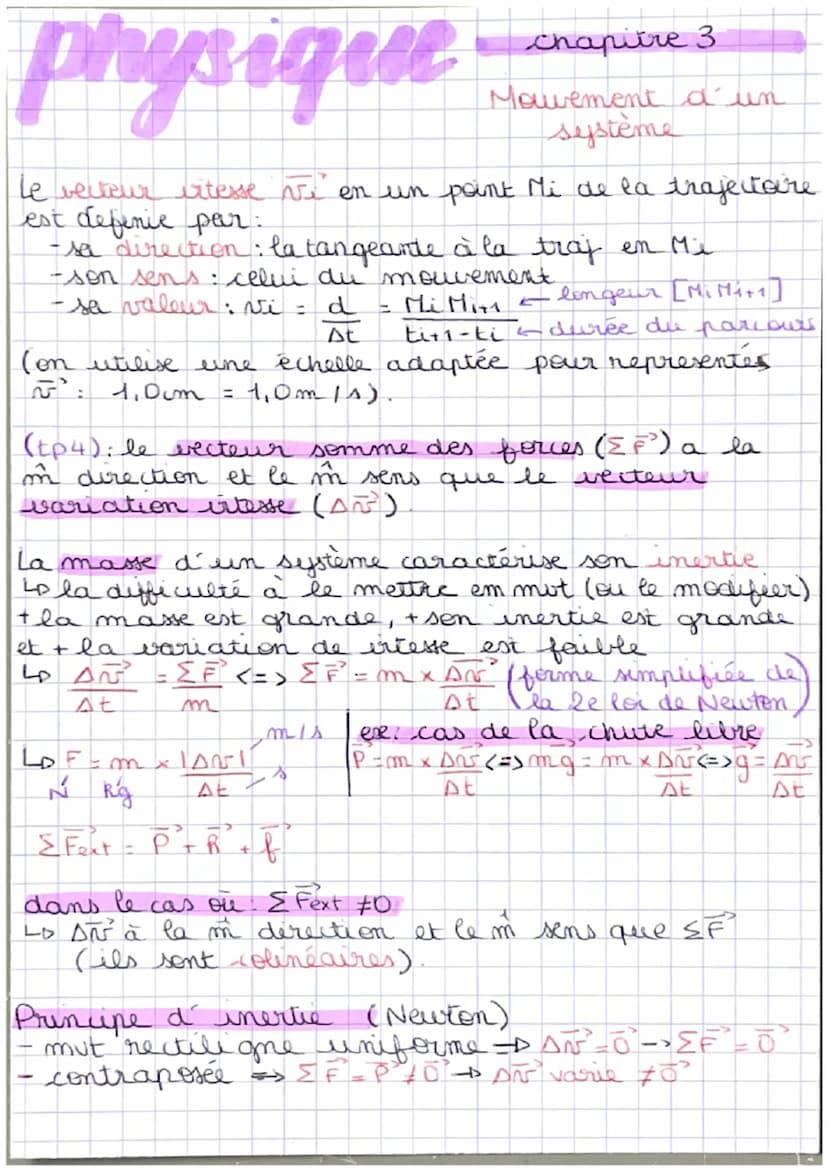 physique
chapitre 3
Mouvement d'un
système
Le vecteur vitesse v⃗i en un point Mi de la trajectoire
est definie par:
- sa direction : la tangeante à la traj en Mi
- son sens : celui du mouvement
- sa valeur : vi = d/Δt = MiMi+1/ti+1-ti ← longeur [MiMi+1] ← durée du parcours
(on utilise une échelle adaptée pour représentés
v⃗ : 1,0cm = 1,0m/s).
(tp4): le vecteur somme des forces (ΣF⃗) a la
m̂ direction et le m̂ sens que le vecteur
variation vitesse (Δv⃗)
La masse d'un système caractérise son inertie
↳ la difficulté à le mettre em mvt (ou le modifier)
+ la masse est grande, + son inertie est grande
et + la variation de vitesse est faible
↳ Δv⃗/Δt = ΣF⃗/m <=> ΣF⃗ = m × Δv⃗/Δt (forme simplifiée de la 2e loi de Newton)
ex: cas de la chute libre
↳ F = m × |Δv|/Δt m/s s N Kg
P⃗ = m × Δv⃗/Δt <=> mg⃗ = m × Δv⃗/Δt <=> g⃗ = Δv⃗/Δt
ΣF⃗ext = P⃗ + R⃗ + f⃗
dans le cas où : ΣF⃗ext ≠0
↳ Δv⃗ à la m̂ direction et le m̂ sens que ΣF⃗
(ils sont colinéaires).
Principe d'inertie (Newton)
- mvt rectiligne uniforme ⇒ Δv⃗ = 0⃗ → ΣF⃗ = 0⃗
- contraposée ⇒ ΣF⃗ = P⃗ ≠ 0⃗ → Δv⃗ varie ≠ 0⃗